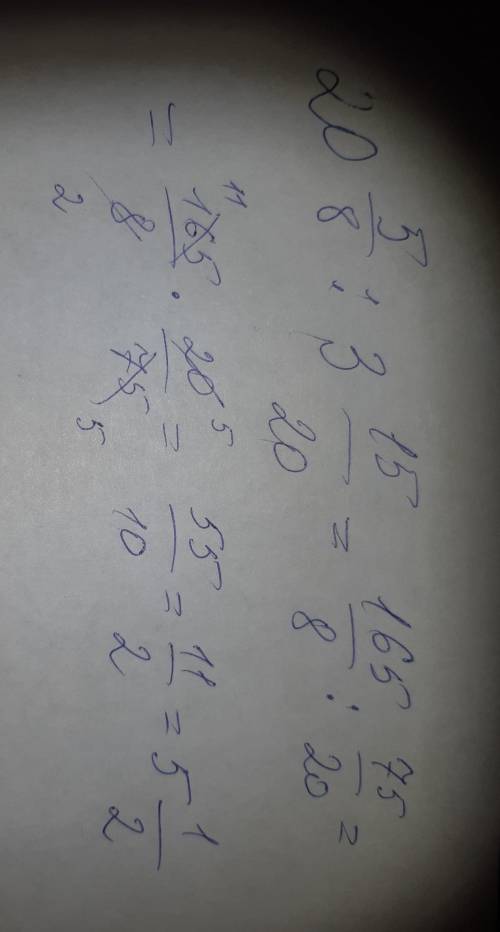 20 5/8 : 3 15/20 = 165/8 : 75/20 =
= 11 165/8 2 · 20/75 5 5 = 55/10 = 11/2 = 5 1/2